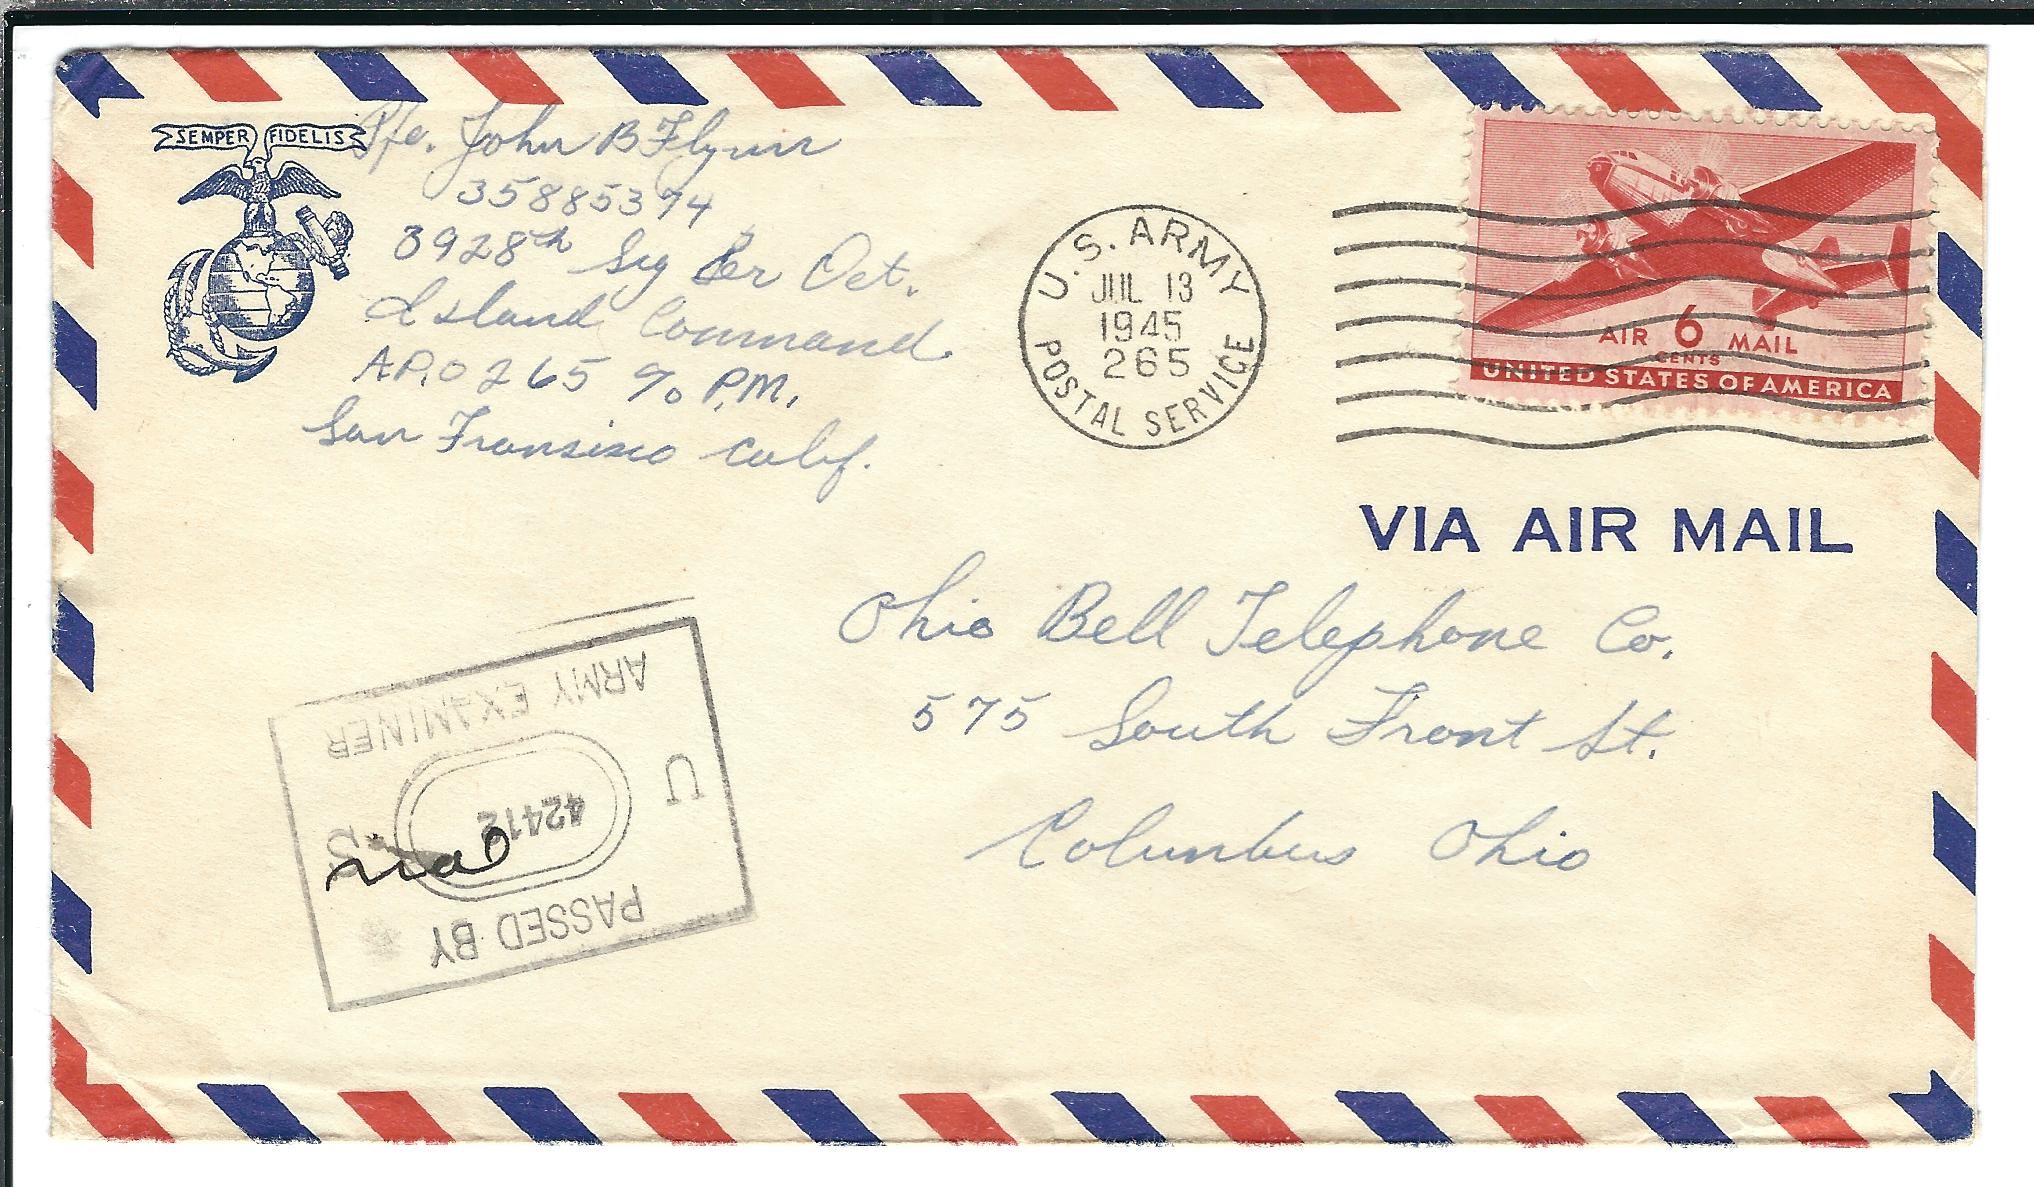 SEMPER FIDELIS
Pfc. John B Flynn
35885374
3928th Sig Ser Det.
Island Command
A.P.O 265 c/o P.M.
San Fransisco Calif.
U.S. ARMY
JUL 13
1945
265
POSTAL SERVICE
AIR 6 MAIL
CENTS
UNITED STATES OF AMERICA
VIA AIR MAIL
Ohio Bell Telephone Co.
575 South Front St.
Columbus Ohio
PASSED BY
U S
42412
ARMY EXAMINER